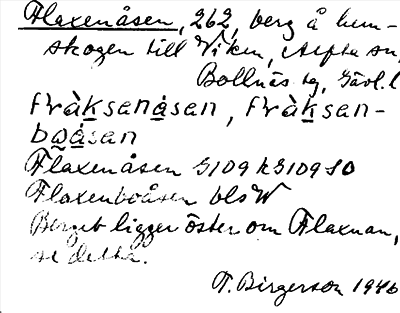 Flaxenåsen, 262, berg å hem-
skogen till Viken, Alfta sn,
Bollnäs tg, Gävl. l
fràksenåsen, fràksen-
bo̰åsen
Flaxenåsen G109 h G109 SO
Flaxenboåsen bl s W
Berget ligger öster om Flaxnan,
se detta.
T. Birgerson 1946